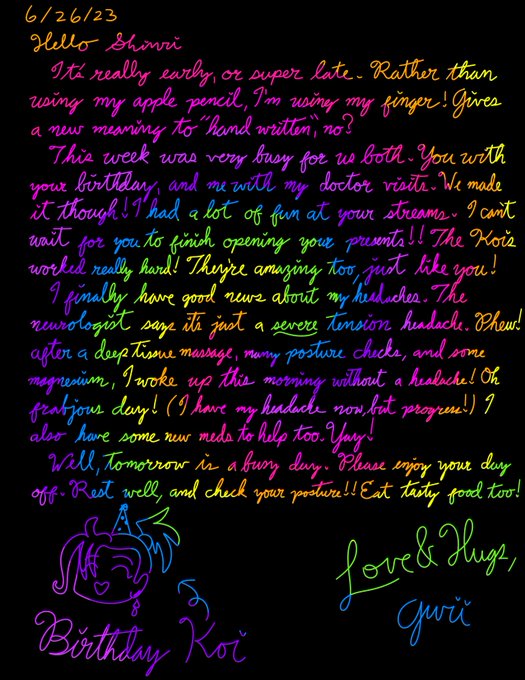 6/26/23
Hello Shinri
It's really early, or super late. Rather than
using my apple pencil, I'm using my finger! Gives
a new meaning to "hand written", no?
This week was very busy for us both. You with
your birthday, and me with my doctor visits. We made
it though! I had a lot of fun at your streams. I can't
wait for you to finish opening your presents!! The Kois
worked really hard! They're amazing too, just like you!
I finally have good news about my headaches. The
neurologist says it's just a severe tension headache. Phew!
after a deep tissue massage, many posture checks, and some
magnesium, I woke up this morning without a headache! Oh
frabjous day! (I have my headache now, but progress!) I
also have some new meds to help too. Yay!
Well, tomorrow is a busy day. Please enjoy your day
off. Rest well, and check your posture!! Eat tasty food too!
Love & Hugs,
Gwii
Birthday Koi